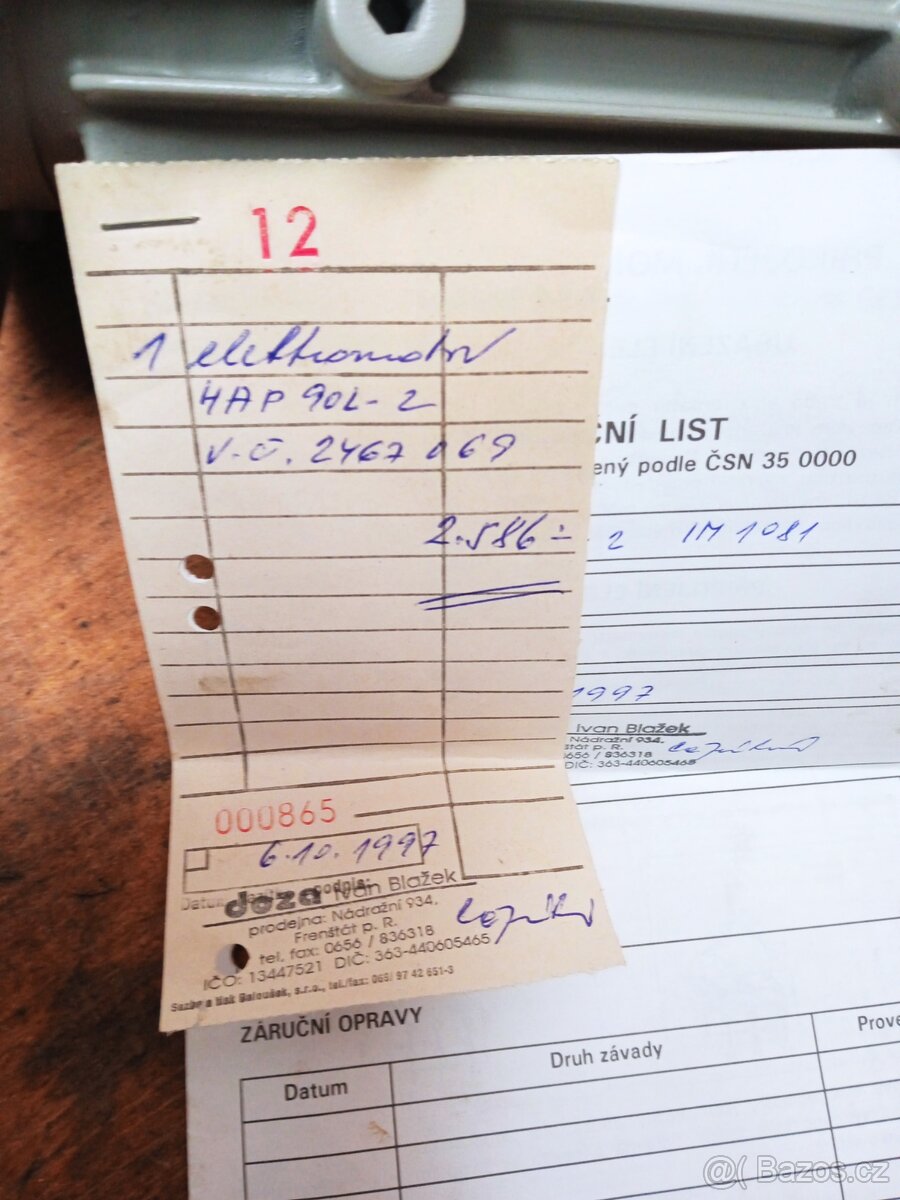 12
1 elektromotor
4AP 90L-2
v.č. 2467 069
2.586 ÷
000865
6.10.1997
Datum podpis:
doza Ivan Blažek
prodejna: Nádražní 934,
Frenštát p. R.
tel. fax: 0656 / 836318
IČO: 13447521 DIČ: 363-440605465
Sazba a tisk Baloušek, s.r.o., tel./fax: 065/ 97 42 651-3
ČNÍ LIST
ený podle ČSN 35 0000
2 IM 1081
1997
Ivan Blažek
Nádražní 934,
štát p. R.
0656 / 836318
DIČ: 363-440605465
ZÁRUČNÍ OPRAVY
Datum
Druh závady
Prove
@( Bazos.cz